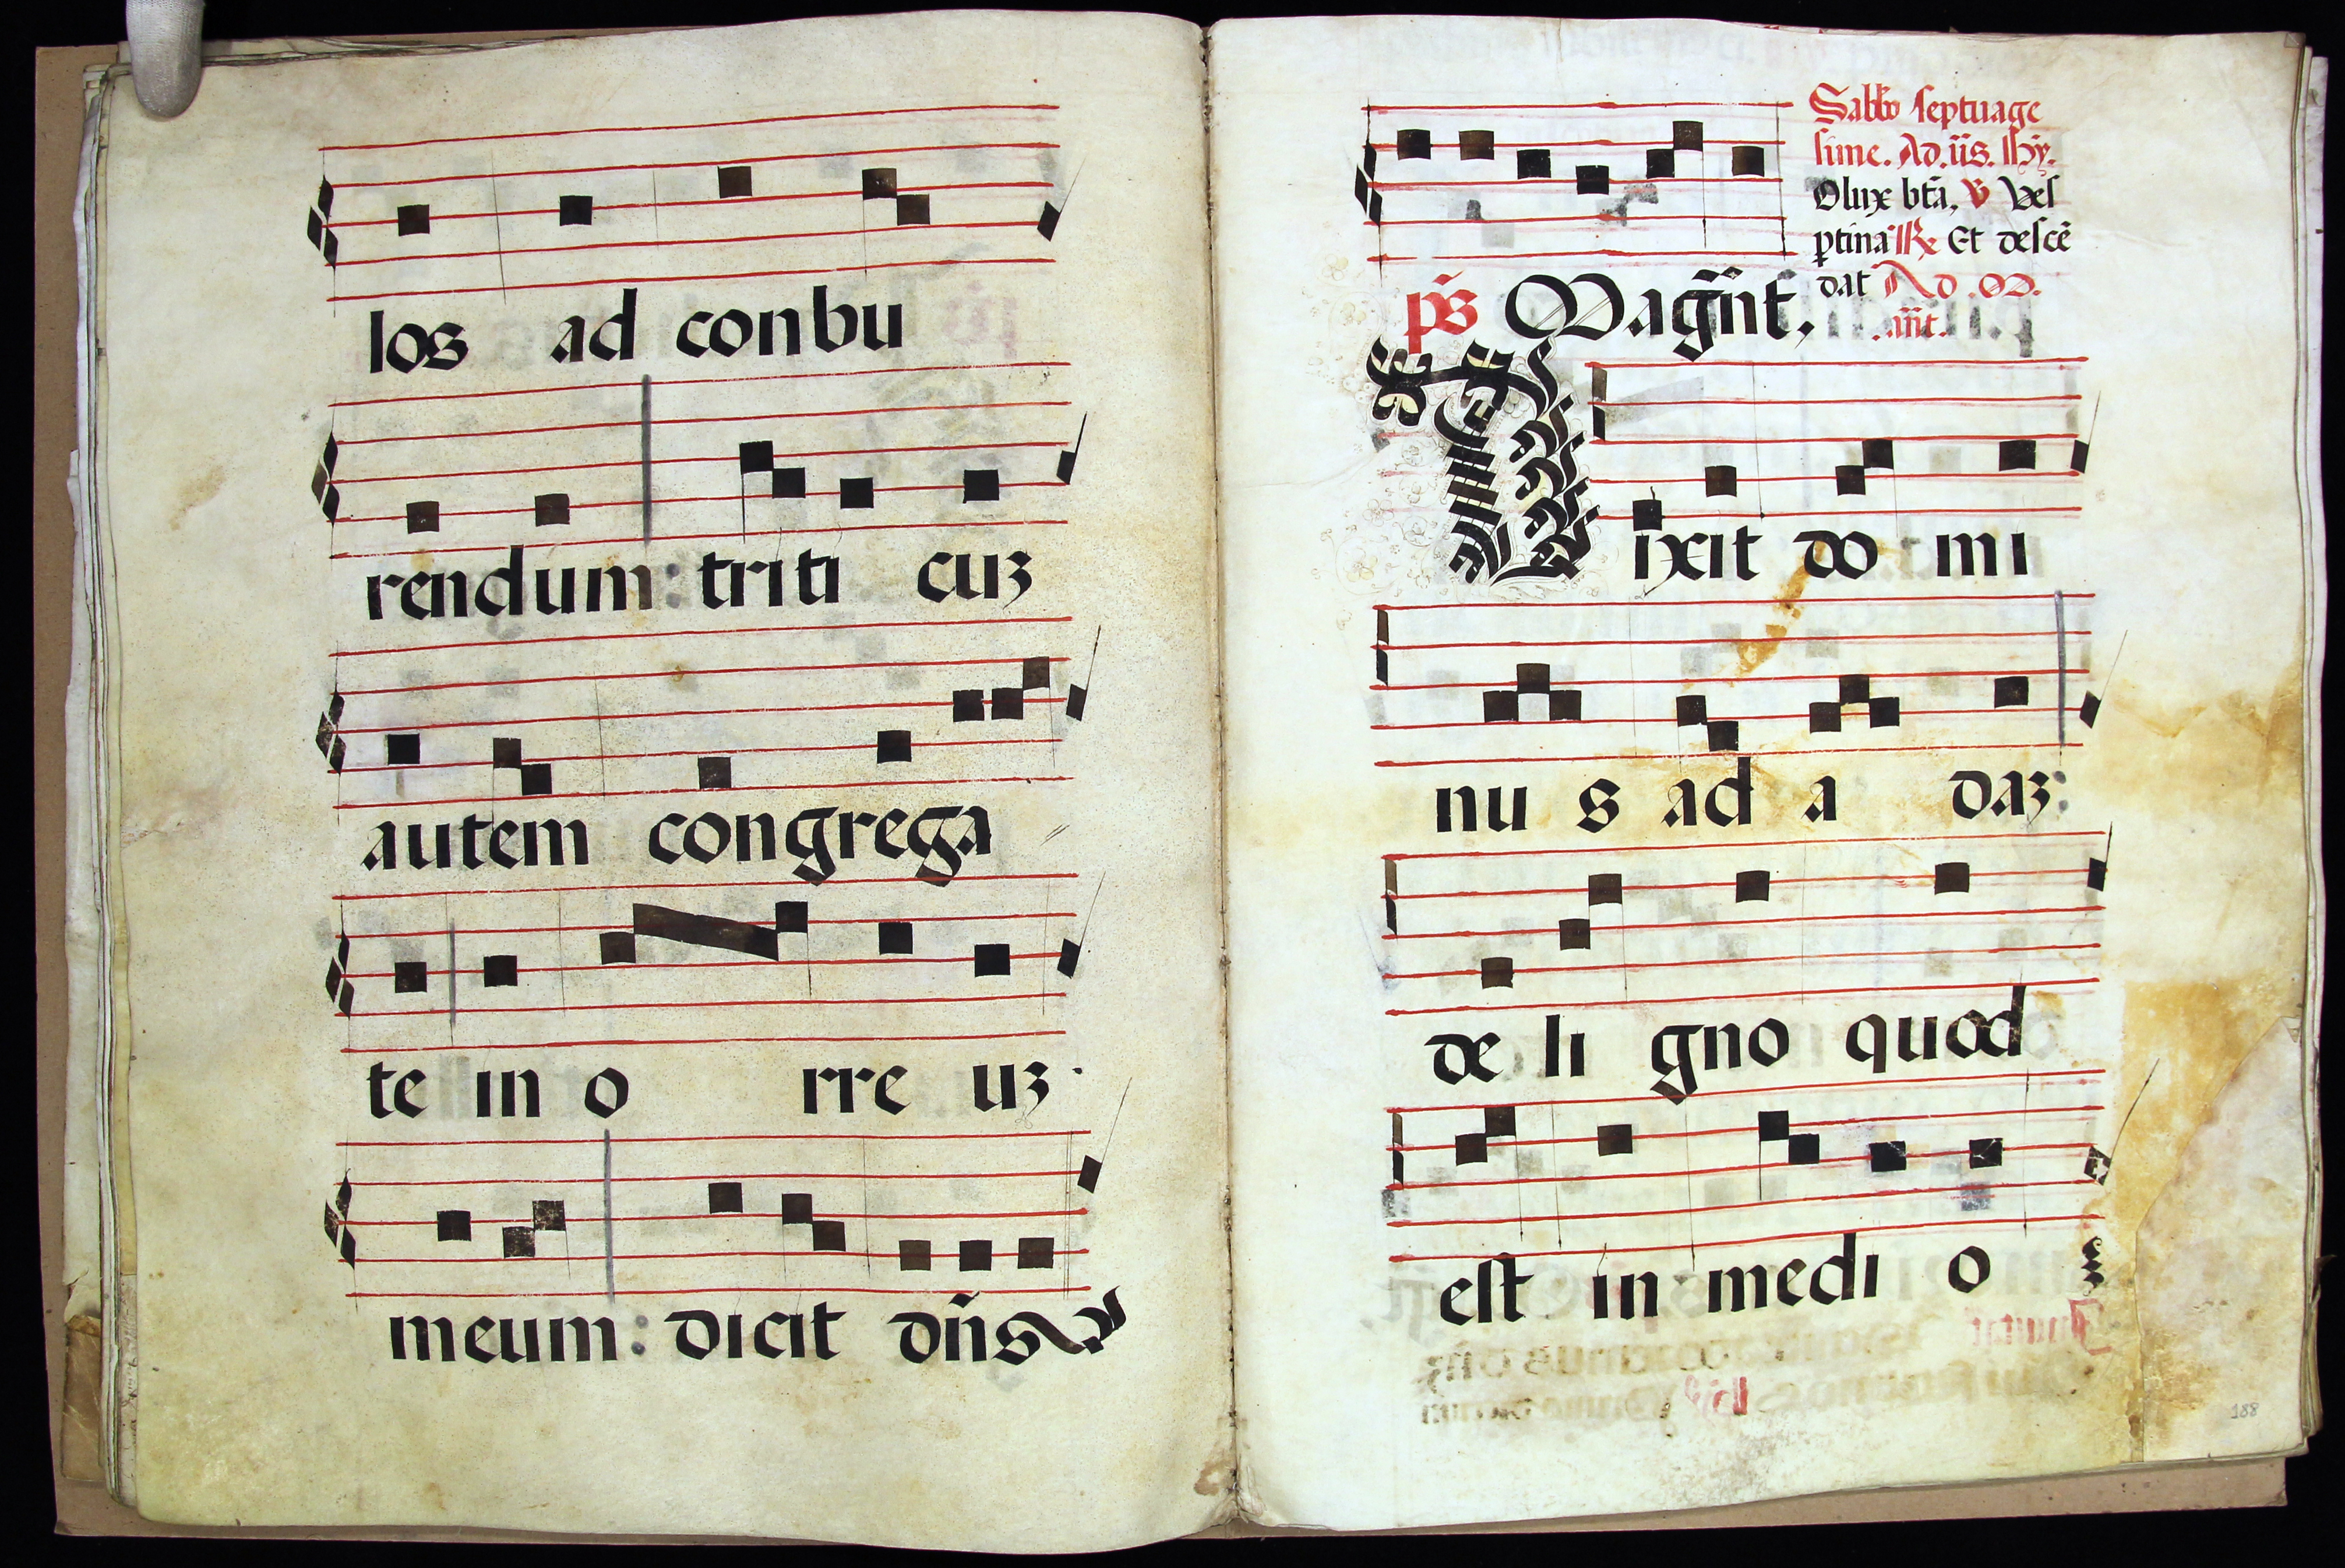 los ad conbu
rendum: triti cuʒ
autem congrega
te in o rre uʒ
meum: dicit dn̄s
Sabbo septuage
sime. Ad. ūs. Hȳ.
O lux btā, ꝟ Ves
ꝑtina ℟ Et descē
dat Ad .M.
.ān̄t.
p̄s Magn̄t.
Dixit do mi
nu s ad a daʒ:
de li gno quod
est in medi o
188